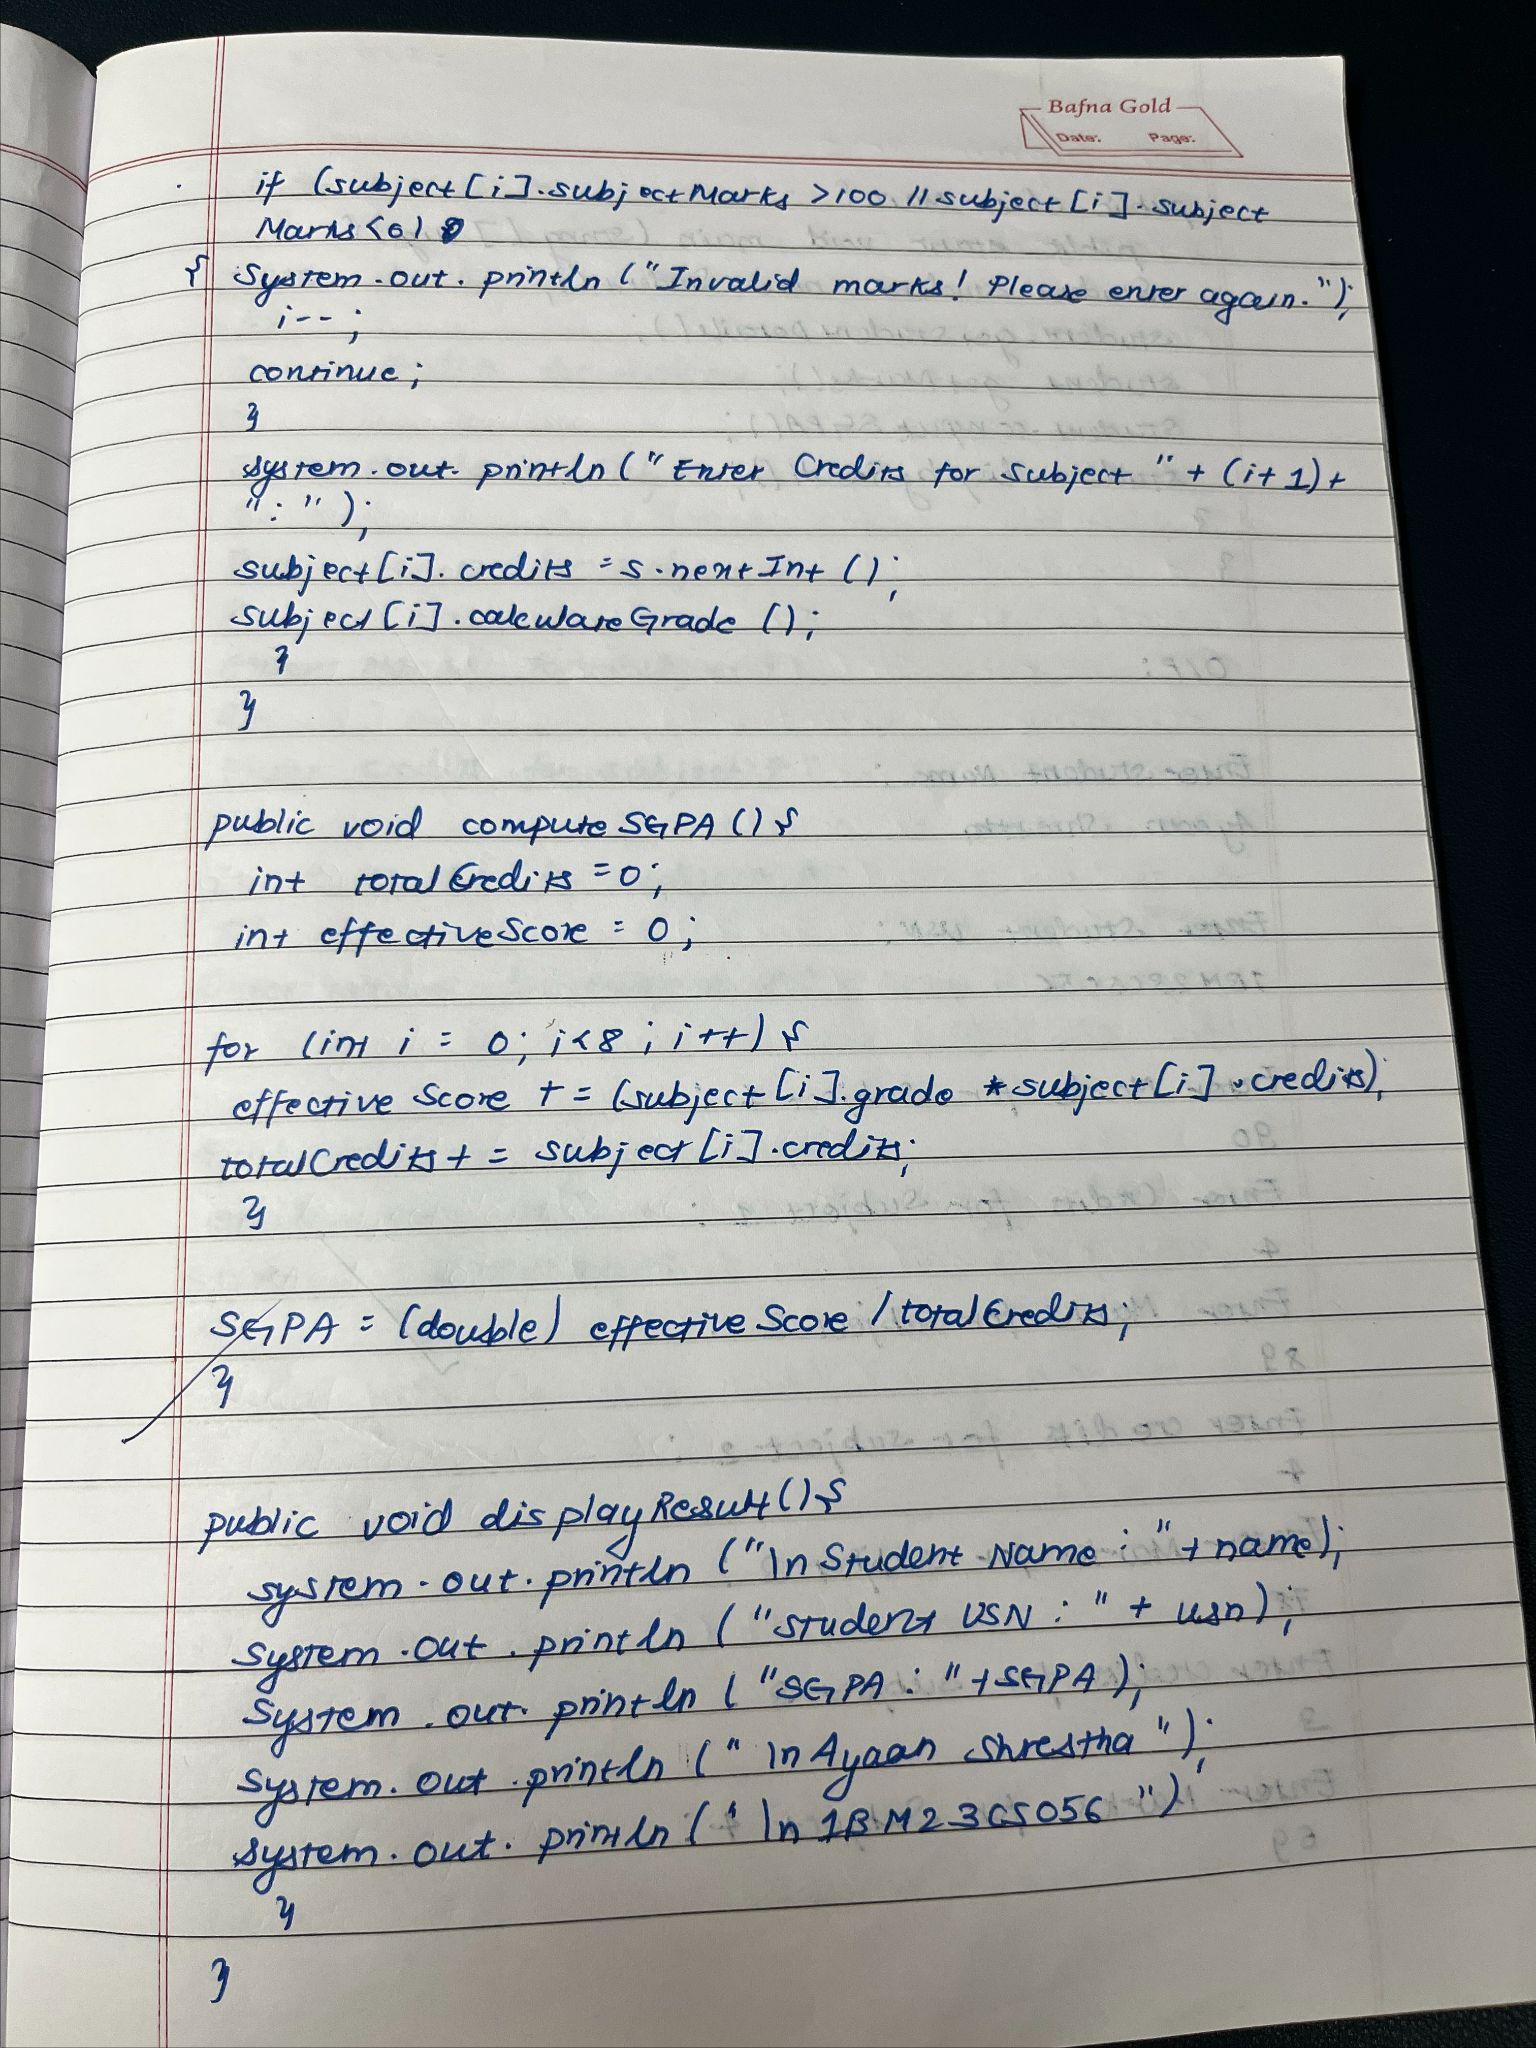 Bafna Gold
Date: Page:
if (subject[i].subjectMarks >100 || subject[i].subject
Marks<0)
{ System.out.println("Invalid marks! Please enter again.");
i--;
continue;
}
System.out.println("Enter Credits for subject " + (i+1)+
":");
subject[i].credits = s.nextInt();
subject[i].calculateGrade();
}
}
public void computeSGPA(){
int totalCredits =0;
int effectiveScore = 0;
for (int i = 0; i<8; i++){
effectiveScore += (subject[i].grade *subject[i].credits);
totalCredits += subject[i].credits;
}
SGPA = (double) effectiveScore / totalCredits;
}
public void displayResult(){
System.out.println("\nStudent Name: "+name);
System.out.println("Student USN: " + usn);
System.out.println("SGPA: "+SGPA);
System.out.println("\nAyaan Shrestha");
System.out.println("\n1BM23CS056")
}
}